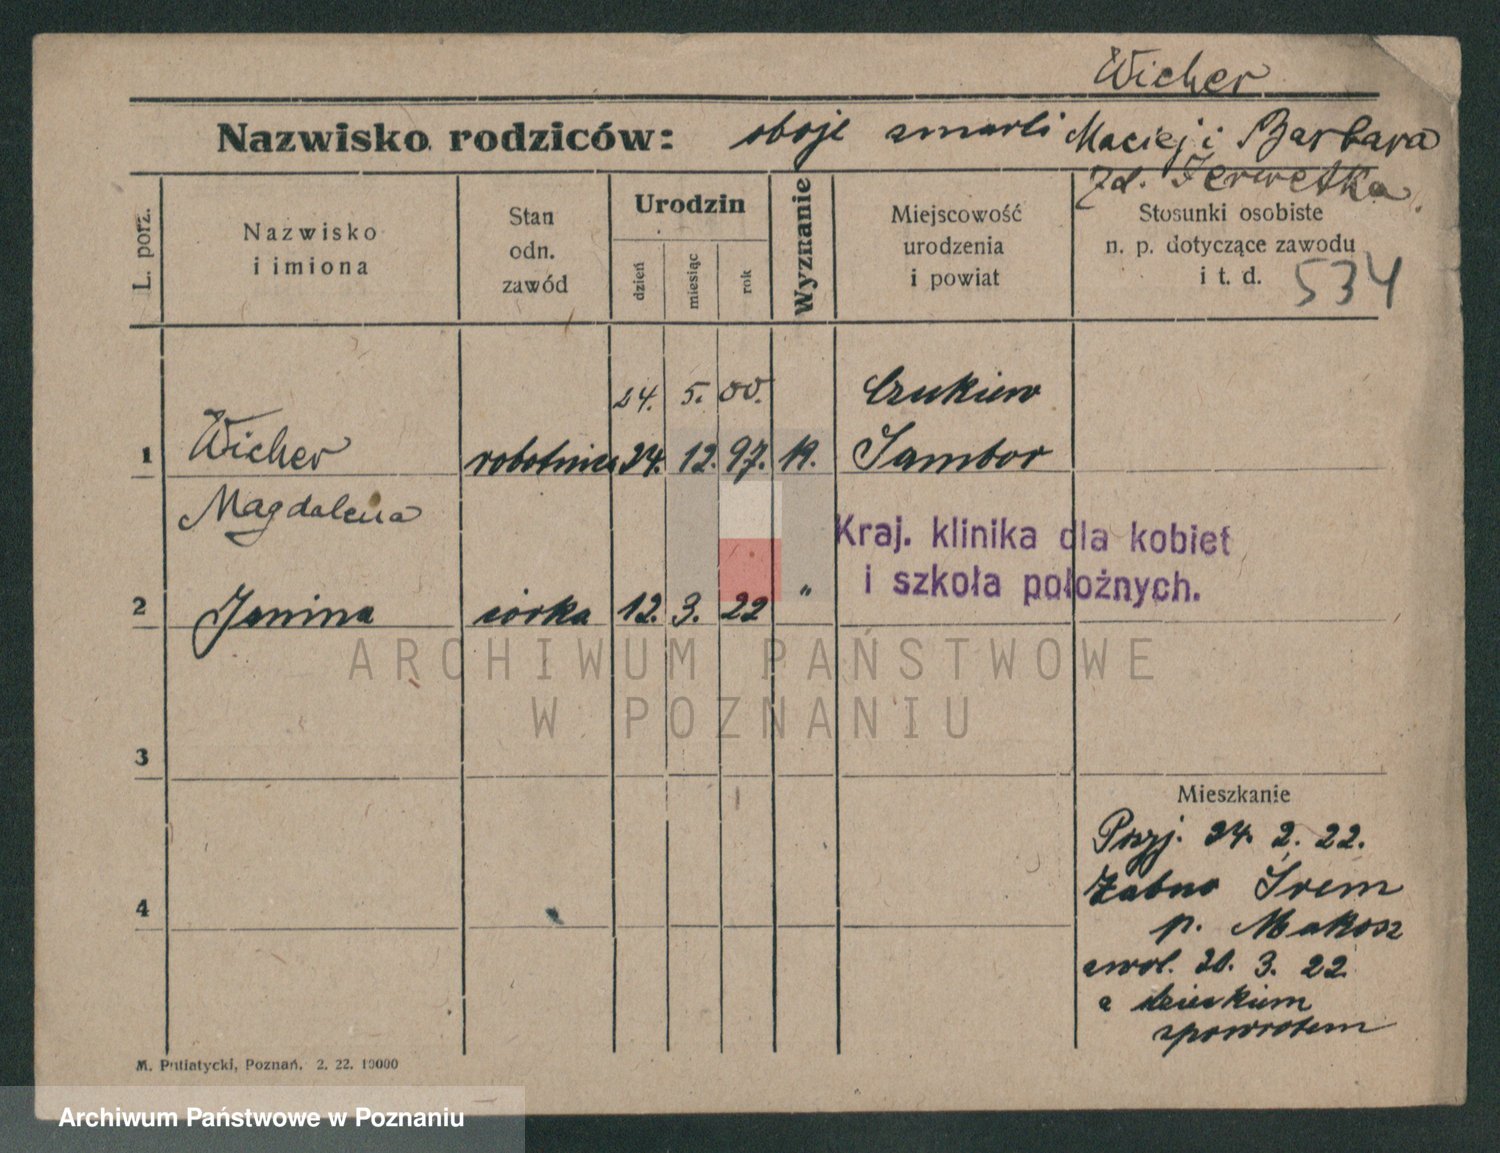 Wicher
Nazwisko rodziców: oboje zmarli Maciej i Barbara
zd.
L. porz.
Nazwisko
i imiona
Stan
odn.
zawód
Urodzin
dzień
miesiąc
rok
Wyznanie
Miejscowość
urodzenia
i powiat
Stosunki osobiste
n. p. dotyczące zawodu
i t. d. 534
24. 5. 00. Czukiew
1 Wicher robotnica 24. 12. 97. Sambor
Magdalena
Kraj. klinika dla kobiet
i szkoła położnych.
2 Janina córka 12. 3. 22 "
ARCHIWUM PAŃSTWOWE
W POZNANIU
3
Mieszkanie
Przyj. 24. 2. 22.
4
Żabno Śrem
p. Makosz
zwol. 20. 3. 22
z dzieckiem
zpowrotem
M. Putiatycki, Poznań, 2. 22. 10000
Archiwum Państwowe w Poznaniu